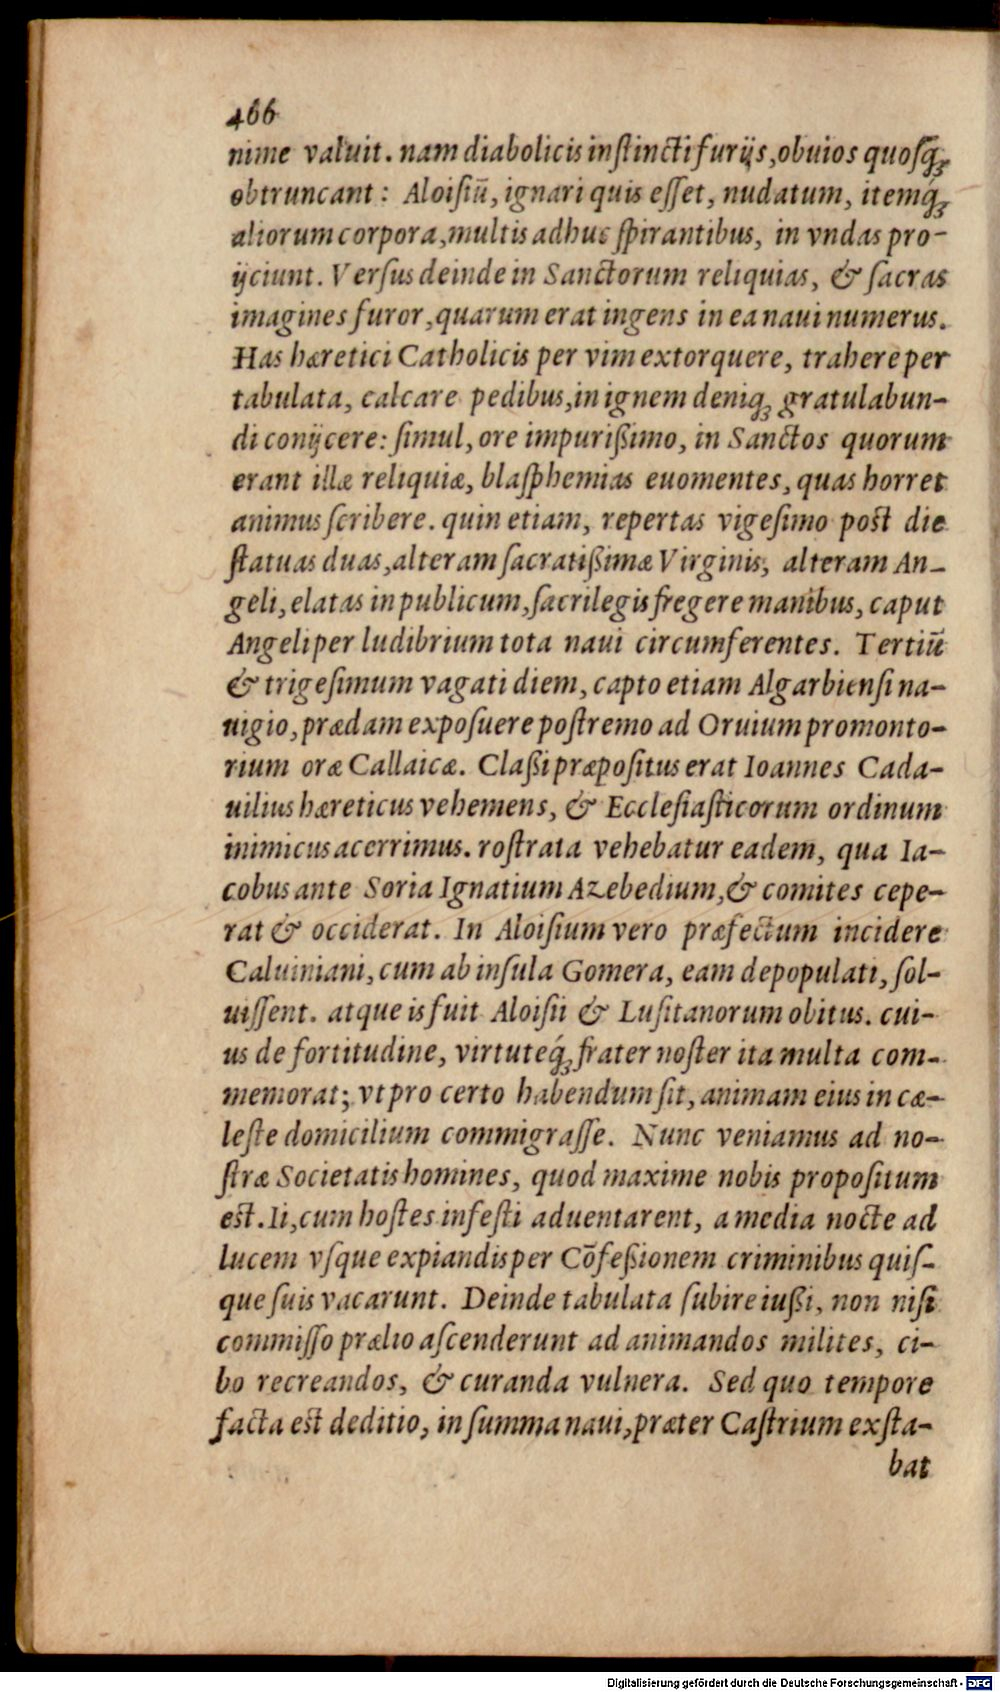 466
nime valuit. nam diabolicis inſtincti furijs, obuios quoſq́;
obtruncant: Aloiſiū, ignari quis eſſet, nudatum, itemq́;
aliorum corpora, multis adhuc ſpirantibus, in vndas pro-
ijciunt. Verſus deinde in Sanctorum reliquias, & ſacras
imagines furor, quarum erat ingens in ea naui numerus.
Has hæretici Catholicis per vim extorquere, trahere per
tabulata, calcare pedibus, in ignem deniq; gratulabun-
di conijcere: ſimul, ore impurißimo, in Sanctos quorum
erant illæ reliquiæ, blaſphemias euomentes, quas horret
animus ſcribere. quin etiam, repertas vigeſimo post die
ſtatuas duas, alteram ſacratißimæ Virginis, alteram An-
geli, elatas in publicum, ſacrilegis fregere manibus, caput
Angeli per ludibrium tota naui circumferentes. Tertiū
& trigeſimum vagati diem, capto etiam Algarbienſi na-
uigio, prædam expoſuere poſtremo ad Oruium promonto-
rium oræ Callaicæ. Claßi præpoſitus erat Ioannes Cada-
uilius hæreticus vehemens, & Eccleſiaſticorum ordinum
inimicus acerrimus. roſtrata vehebatur eadem, qua Ia-
cobus ante Soria Ignatium Azebedium, & comites cepe-
rat & occiderat. In Aloiſium vero præfectum incidere
Caluiniani, cum ab inſula Gomera, eam depopulati, ſol-
uiſſent. atque is fuit Aloiſii & Luſitanorum obitus. cui-
us de fortitudine, virtuteq́; frater noſter ita multa com-
memorat; vt pro certo habendum ſit, animam eius in cæ-
leſte domicilium commigraſſe. Nunc veniamus ad no-
ſtræ Societatis homines, quod maxime nobis propoſitum
est. Ii, cum hoſtes infeſti aduentarent, a media nocte ad
lucem vſque expiandis per Cōfeßionem criminibus quiſ-
que ſuis vacarunt. Deinde tabulata ſubire iußi, non niſi
commiſſo prælio aſcenderunt ad animandos milites, ci-
bo recreandos, & curanda vulnera. Sed quo tempore
facta est deditio, in ſumma naui, præter Caſtrium exſta-
bat
Digitalisierung gefördert durch die Deutsche Forschungsgemeinschaft - DFG